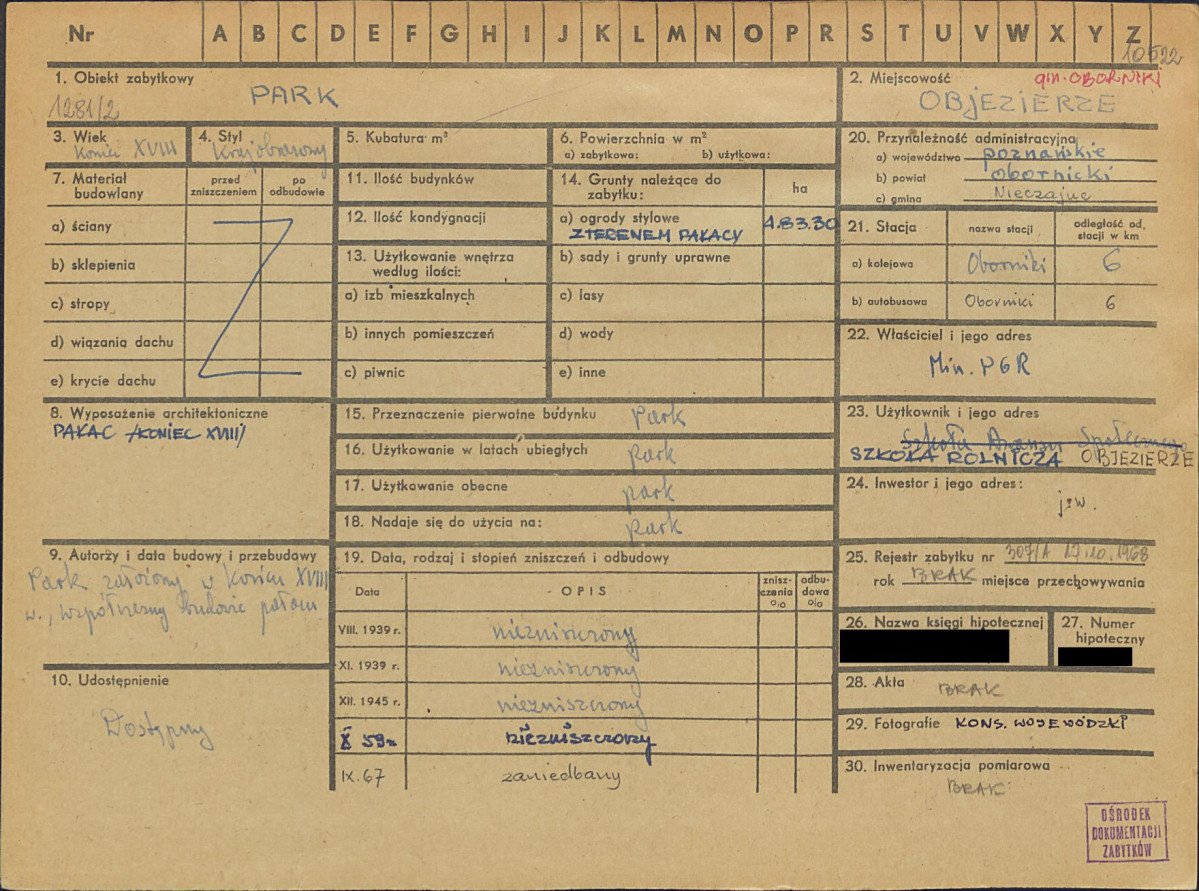 Nr A B C D E F G H I J K L M N O P R S T U V W X Y Z
10522
1. Obiekt zabytkowy
1281/2
PARK
2. Miejscowość
gm. OBORNIKI
OBJEZIERZE
3. Wiek
Koniec XVIII
4. Styl
Krajobrazowy
5. Kubatura m³
6. Powierzchnia w m²
a) zabytkowa: b) użytkowa:
20. Przynależność administracyjna
a) województwo poznańskie
b) powiat obornicki
c) gmina Nieczajna
7. Materiał budowlany
przed zniszczeniem
po odbudowie
a) ściany
b) sklepienia
c) stropy
d) wiązania dachu
e) krycie dachu
11. Ilość budynków
12. Ilość kondygnacji
13. Użytkowanie wnętrza
według ilości:
a) izb mieszkalnych
b) innych pomieszczeń
c) piwnic
14. Grunty należące do
zabytku:
ha
a) ogrody stylowe
Z TERENEM PAŁACY
4.83.30
b) sady i grunty uprawne
c) lasy
d) wody
e) inne
21. Stacja
nazwa stacji
odległość od,
stacji w km
a) kolejowa Oborniki 6
b) autobusowa Oborniki 6
22. Właściciel i jego adres
Min. PGR
8. Wyposażenie architektoniczne
PAŁAC /KONIEC XVIII/
15. Przeznaczenie pierwotne budynku park
16. Użytkowanie w latach ubiegłych park
17. Użytkowanie obecne park
18. Nadaje się do użycia na: park
23. Użytkownik i jego adres
SZKOŁA ROLNICZA OBJEZIERZE
24. Inwestor i jego adres:
j.w.
9. Autorzy i data budowy i przebudowy
Park założony w końcu XVIII
w., współczesny budowie pałacu
10. Udostępnienie
Dostępny
19. Data, rodzaj i stopień zniszczeń i odbudowy
Data
OPIS
znisz-
czenia
%
odbu-
dowa
%
VIII. 1939 r. niezniszczony
XI. 1939 r. niezniszczony
XII. 1945 r. niezniszczony
X 59 r niezniszczony
IX. 67 zaniedbany
25. Rejestr zabytku nr 307/A 17.10.1968
rok BRAK miejsce przechowywania
26. Nazwa księgi hipotecznej
27. Numer
hipoteczny
28. Akta BRAK
29. Fotografie KONS. WOJEWÓDZKI
30. Inwentaryzacja pomiarowa
BRAK
OŚRODEK
DOKUMENTACJI
ZABYTKÓW